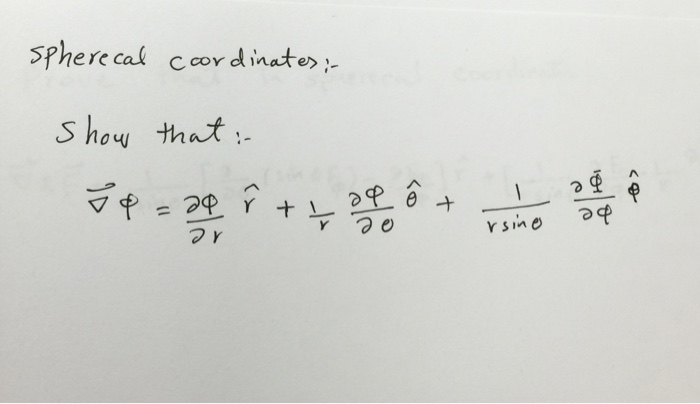 spherecal coordinates:-
Show that:-
∇⃗φ = ∂φ/∂r r̂ + 1/r ∂φ/∂θ θ̂ + 1/(r sinθ) ∂Φ/∂φ φ̂